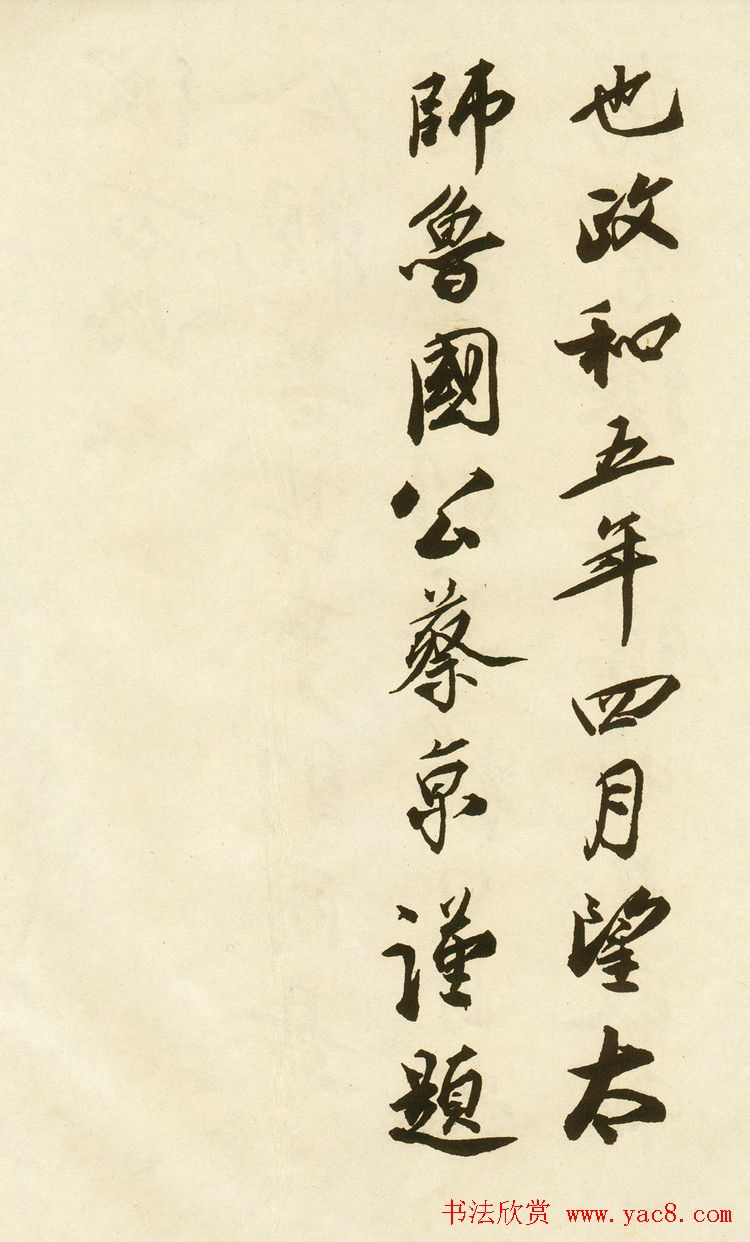 也政和五年四月望太
師魯國公蔡京謹題
书法欣赏 www.yac8.com